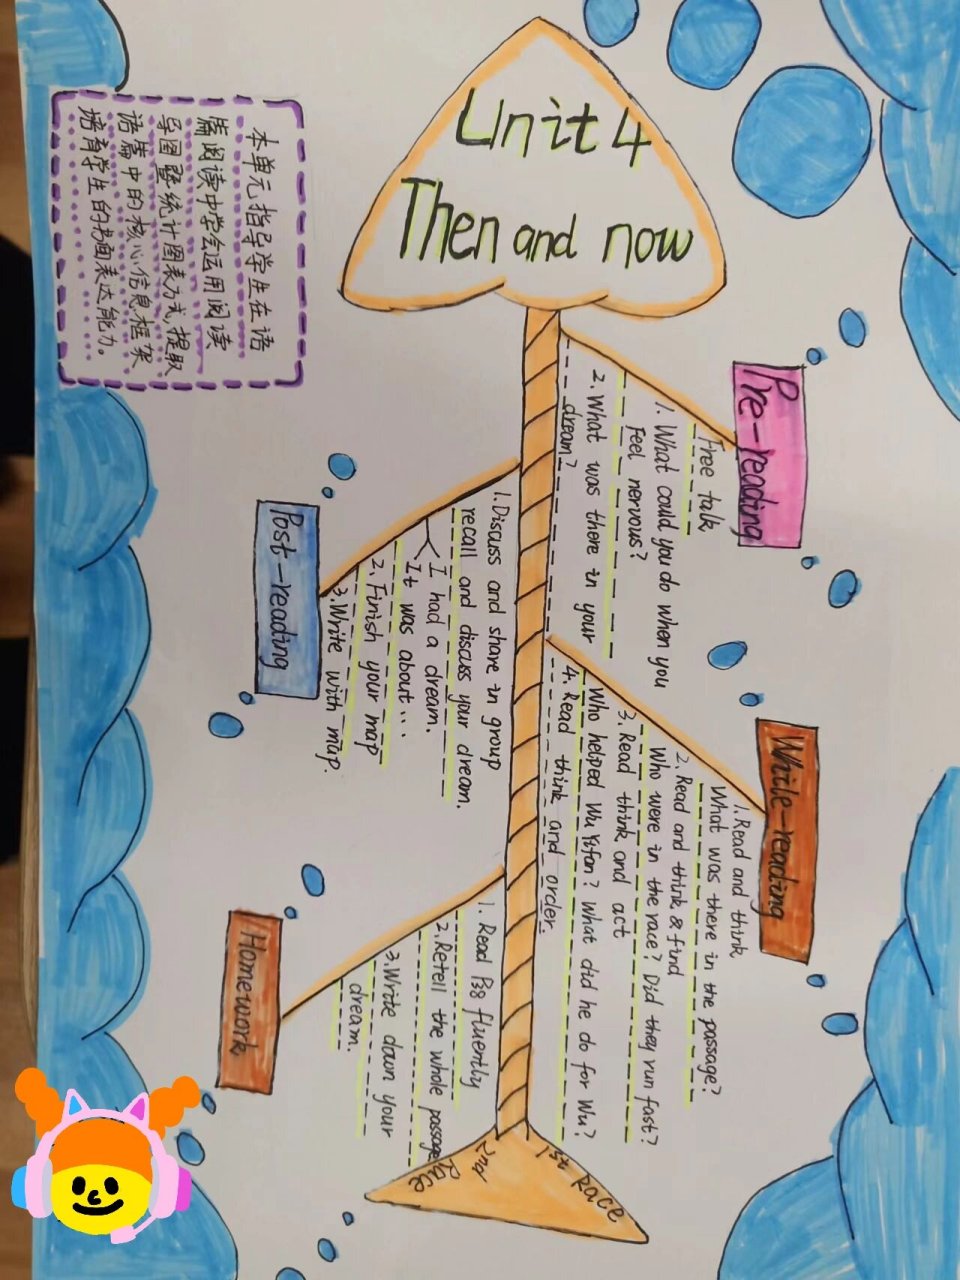 Unit 4
Then and now
本单元指导学生在语
篇阅读中学会运用阅读
导图暨统计图表方式,提取
语篇中的核心信息框架
培育学生的书面表达能力。
Pre-reading
Free talk
1. What could you do when you
Feel nervous?
2. What was there in your
dream?
While-reading
1. Read and think
What was there in the passage?
2. Read and think & find
Who were in the race? Did they run fast?
3. Read think and act
Who helped Wu Yifan? What did he do for Wu?
4. Read think and order.
Post-reading
1. Discuss and share in group
recall and discuss your dream.
I had a dream.
It was about...
2. Finish your map
3. Write with map.
Homework
1. Read P38 fluently
2. Retell the whole passage
3. Write down your
dream.
1st race
2nd
race